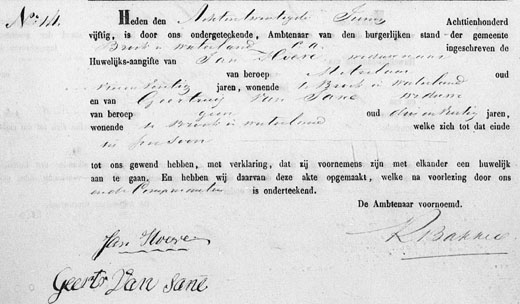 No: 14.
Heden den Achtentwintigste Junij Achttienhonderd
vijftig, is door ons ondergeteekende, Ambtenaar van den burgerlijken stand der gemeente
Broek in waterland C.A. ingeschreven de
Huwelijks-aangifte van Jan Hoeve weduwnaar
van beroep Metselaar oud
en Veertig jaren, wonende te Broek in waterland
en van Geertruij Van Sane weduwe
van beroep geen oud drie en Veertig jaren,
wonende te Broek in waterland welke zich tot dat einde
in persoon
tot ons gewend hebben, met verklaring, dat zij voornemens zijn met elkander een huwelijk
aan te gaan. En hebben wij daarvan deze akte opgemaakt, welke na voorlezing door ons
ende Comparanten is onderteekend.
De Ambtenaar voornoemd.
Jan Hoeve
K Bakker
Geertr Van Sane